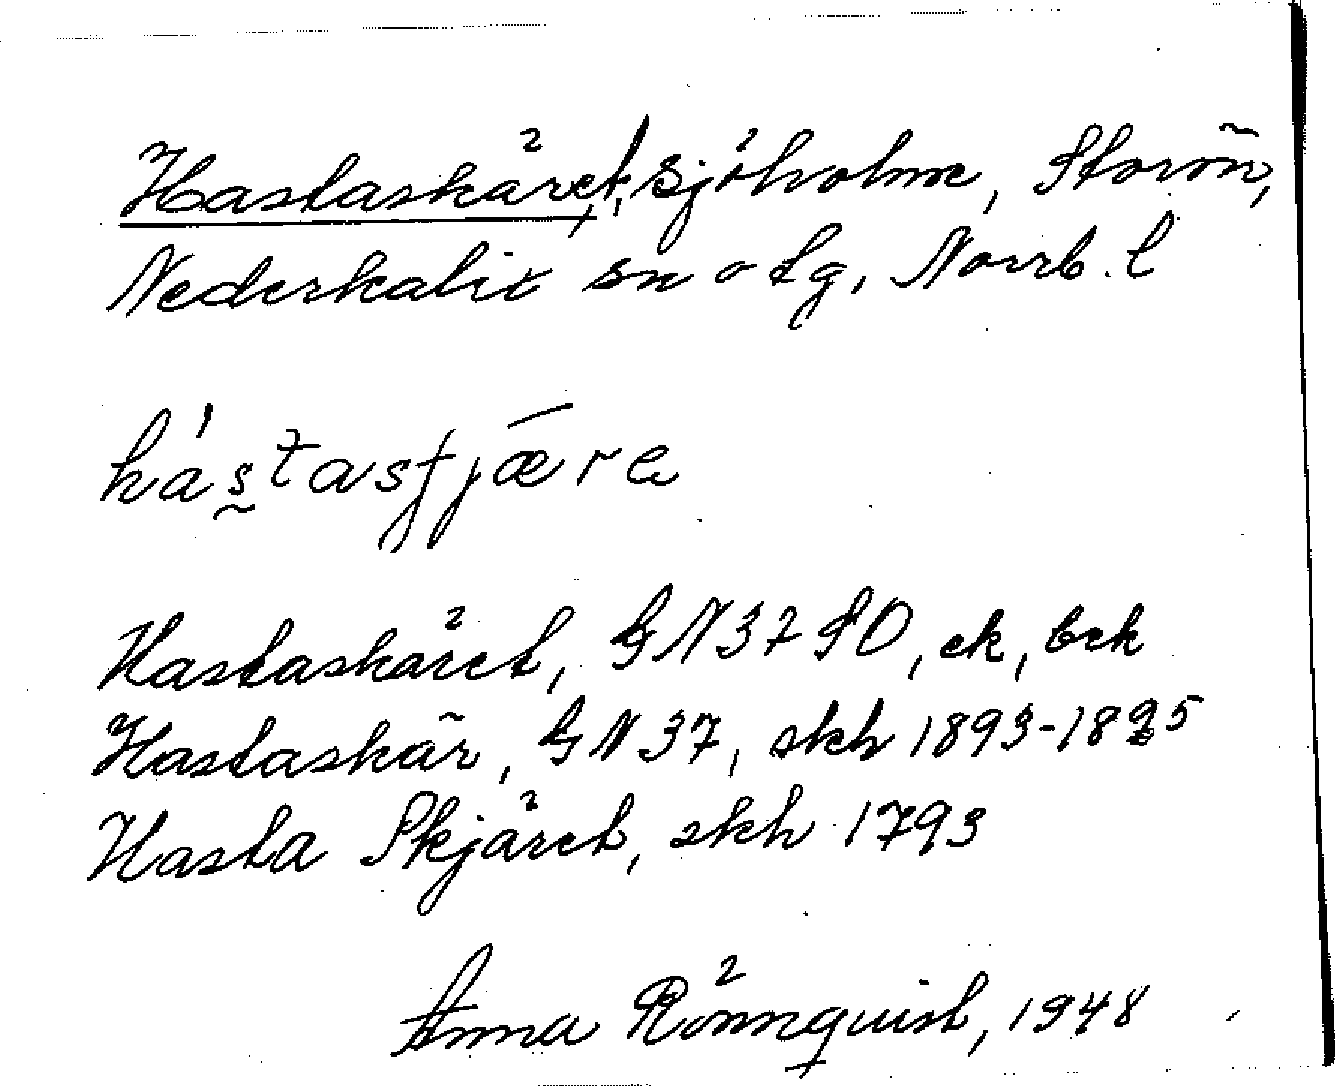 Hastaskäret, sjöholme, Storön,
Nederkalix sn o tg, Norrb. l
hástasʃjære
Hastaskäret, GN37 SO, ek, bek
Hastaskär, GN37, skh 1893-1895
Hasta Skjäret, skh 1793
Anna Rönnquist, 1948